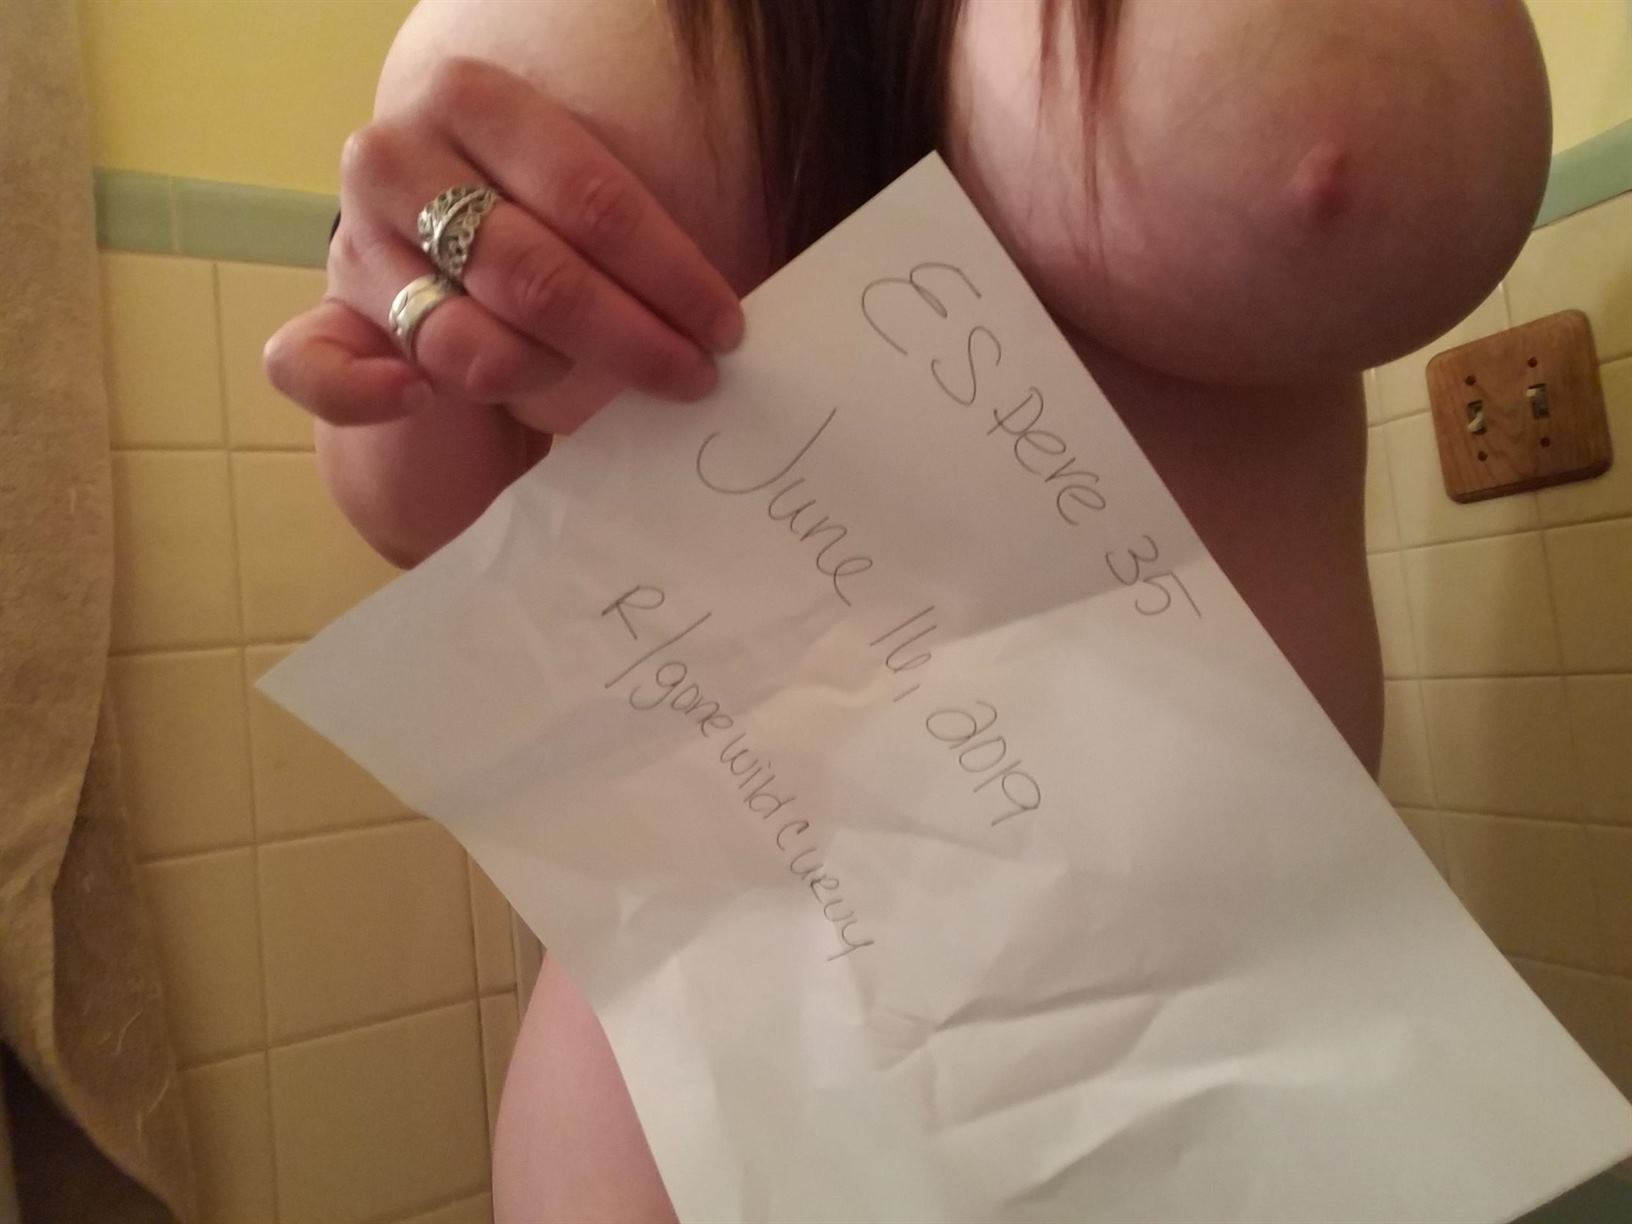 Espere 35
June 16, 2019
R/gonewildcurvy